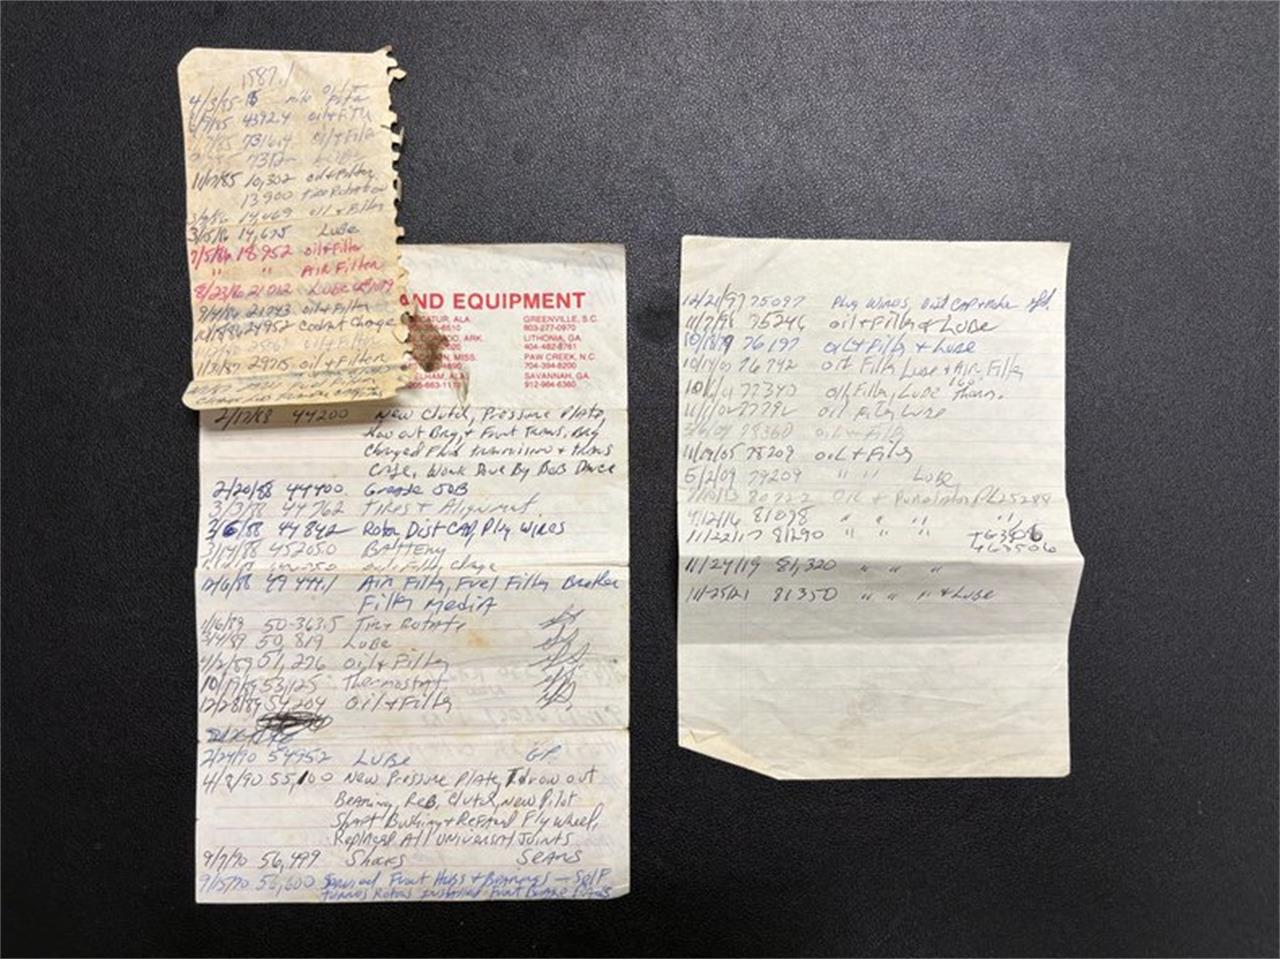 1587.1
4/3/85
4392.4 oil & Filt
7316.4 oil & Filtr
7312 Lube
11/17/85 10,302 oil & Filter
13900 Tire Rotation
14,069 oil & Filter
3/15/86 14,675 Lube
7/5/86 18952 oil & Filter
" " Air Filter
8/23/86 Lube
9/4/86 21743 oil & Filter
24952 Coolant Change
1/3/87 29715 oil & Filter
AND EQUIPMENT
CATUR, ALA.
GREENVILLE, S.C.
803-277-0970
ARK.
LITHONIA, GA.
404-482-8761
MISS.
PAW CREEK, N.C.
704-394-8200
ELHAM, ALA.
SAVANNAH, GA.
912-964-6360
2/17/88 44200 New Clutch, Pressure Plate,
throw out Brg, & Front Trans. Brg
Changed Fluid transmission & trans
Case, Work Done By Bob
2/20/88 44400. Grease JOB
3/3/88 44762 Tires & Alignment.
3/6/88 44842 Rotor Dist CAP, Plug Wires
3/14/88 45205.0 Battery
12/6/88 49444.1 Air Filter, Fuel Filter Breather
Filter Media
1/16/89 50-363.5 Tire Rotate
3/4/89 50,819 Lube
4/2/89 51,276 Oil & Filter
10/17/89 53,125 Thermostat
12/28/89 54204 Oil & Filter
2/24/90 54952 LUBE GP
4/8/90 55,100 New Pressure Plate, Throw out
Bearing, Reb. Clutch, New Pilot
Shaft Bushing & Resand Fly Wheel,
Replaced All Universal Joints
9/7/90 56,499 Shocks SEARS
9/15/90 56,600 Serviced Front Hubs & Bearings — Self
Turned Rotors Installed Front Brake Pads
12/21/97 75097 Plug Wires, Dist CAP & Rotor
11/7/98 75246 oil & Filter & Lube
76197 Oil & Filter & Lube
76742 Oil Filter Lube & Air Filter
77340 Oil, Filter, Lube 160° Therm.
Oil Filter Lube
78360 oil & Filter
11/19/05 78209 oil & Filter
5/2/09 79209 " " Lube
80722 Oil & Purolator PL25288
4/12/16 81098 " " " "
11/22/17 81290 " " " TG3506
11/24/19 81,320 " " "
11/25/21 81350 " " " & Lube